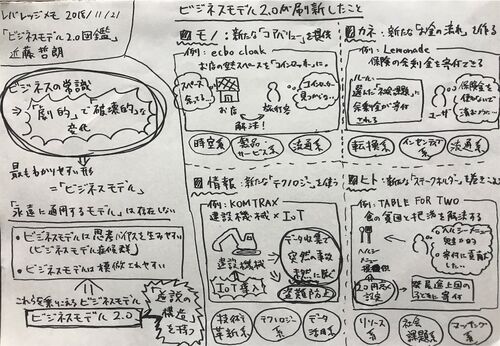 レバレッジメモ 2018/11/21
「ビジネスモデル2.0図鑑」
近藤哲朗
ビジネスの常識
⇒「劇的」で「破壊的」な
変化
最もわかりやすい形
=「ビジネスモデル」
「永遠に通用するモデル」は存在しない
・ビジネスモデルは思考バイアスを生みやすい
(ビジネスモデル症候群)
・ビジネスモデルは模倣されやすい
これらを乗りこえる ビジネスモデル
ビジネスモデル 2.0
逆説の
構造を
持つ
ビジネスモデル2.0が刷新したこと
①モノ:新たな「コアバリュー」を提供
例:ecbo cloak
お店の空きスペースを「コインロッカー」に。
スペース
余ってる…
お店
旅行客
コインロッカー
見つからない…
解決!
時空系
製品・
サービス系
流通系
②カネ:新たな「お金の流れ」を作る
例:Lemonade
保険の余剰金を寄付できる
ルール:
選んだ「社会課題」に
余剰金が寄付
される
ユーザ
保険金
を使わないで
転換系
インセンティブ
系
流通系
③情報:新たな「テクノロジー」を使う
例:KOMTRAX
建設機械 × IoT
建設機械
IoT導入!
データ収集で
突然の事故
未然に防ぐ
盗難防止
技術
革新系
テクノロジー
系
データ
活用系
④ヒト:新たな「ステークホルダー」を巻きこむ
例:TABLE FOR TWO
食の貧困と肥満を解決する
ヘルシー
メニュー
提供
20円高く
設定
ヘルシーメニュー
寄付に貢献
したい
発展途上国の
子どもに寄付
リソース
系
社会
課題系
マッチング
系